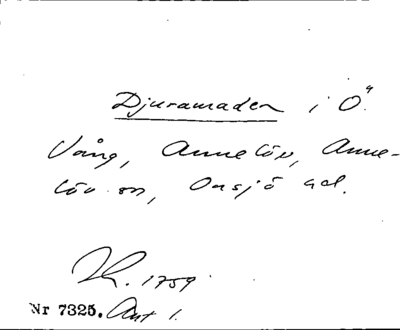 Djuramaden i Ö.
Vång, Annelöv, Anne-
löv sn, Onsjö hd.
1759
Nr 7325. Akt 1.